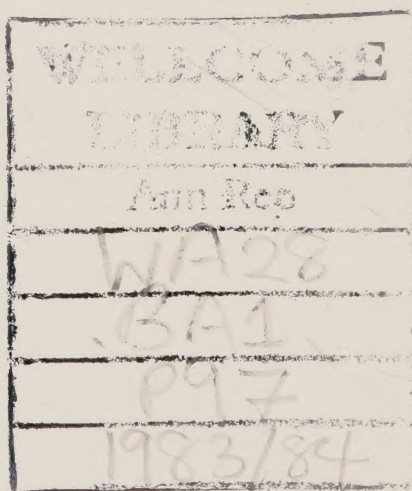 WELLCOME
LIBRARY
Ann Rep
WA28
.BA1
P97
1983/84